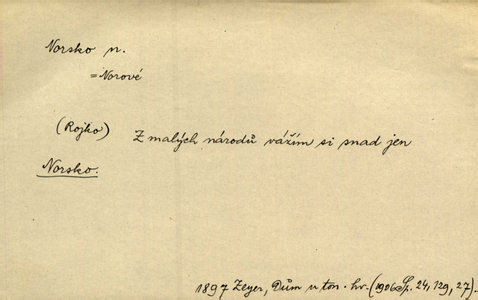 Norsko n.
= Norové
(Rojko) Z malých národů vážím si snad jen
Norsko.
1897 Zeyer, Dům u ton. hv. (1906 Sp. 24, 129, 27).